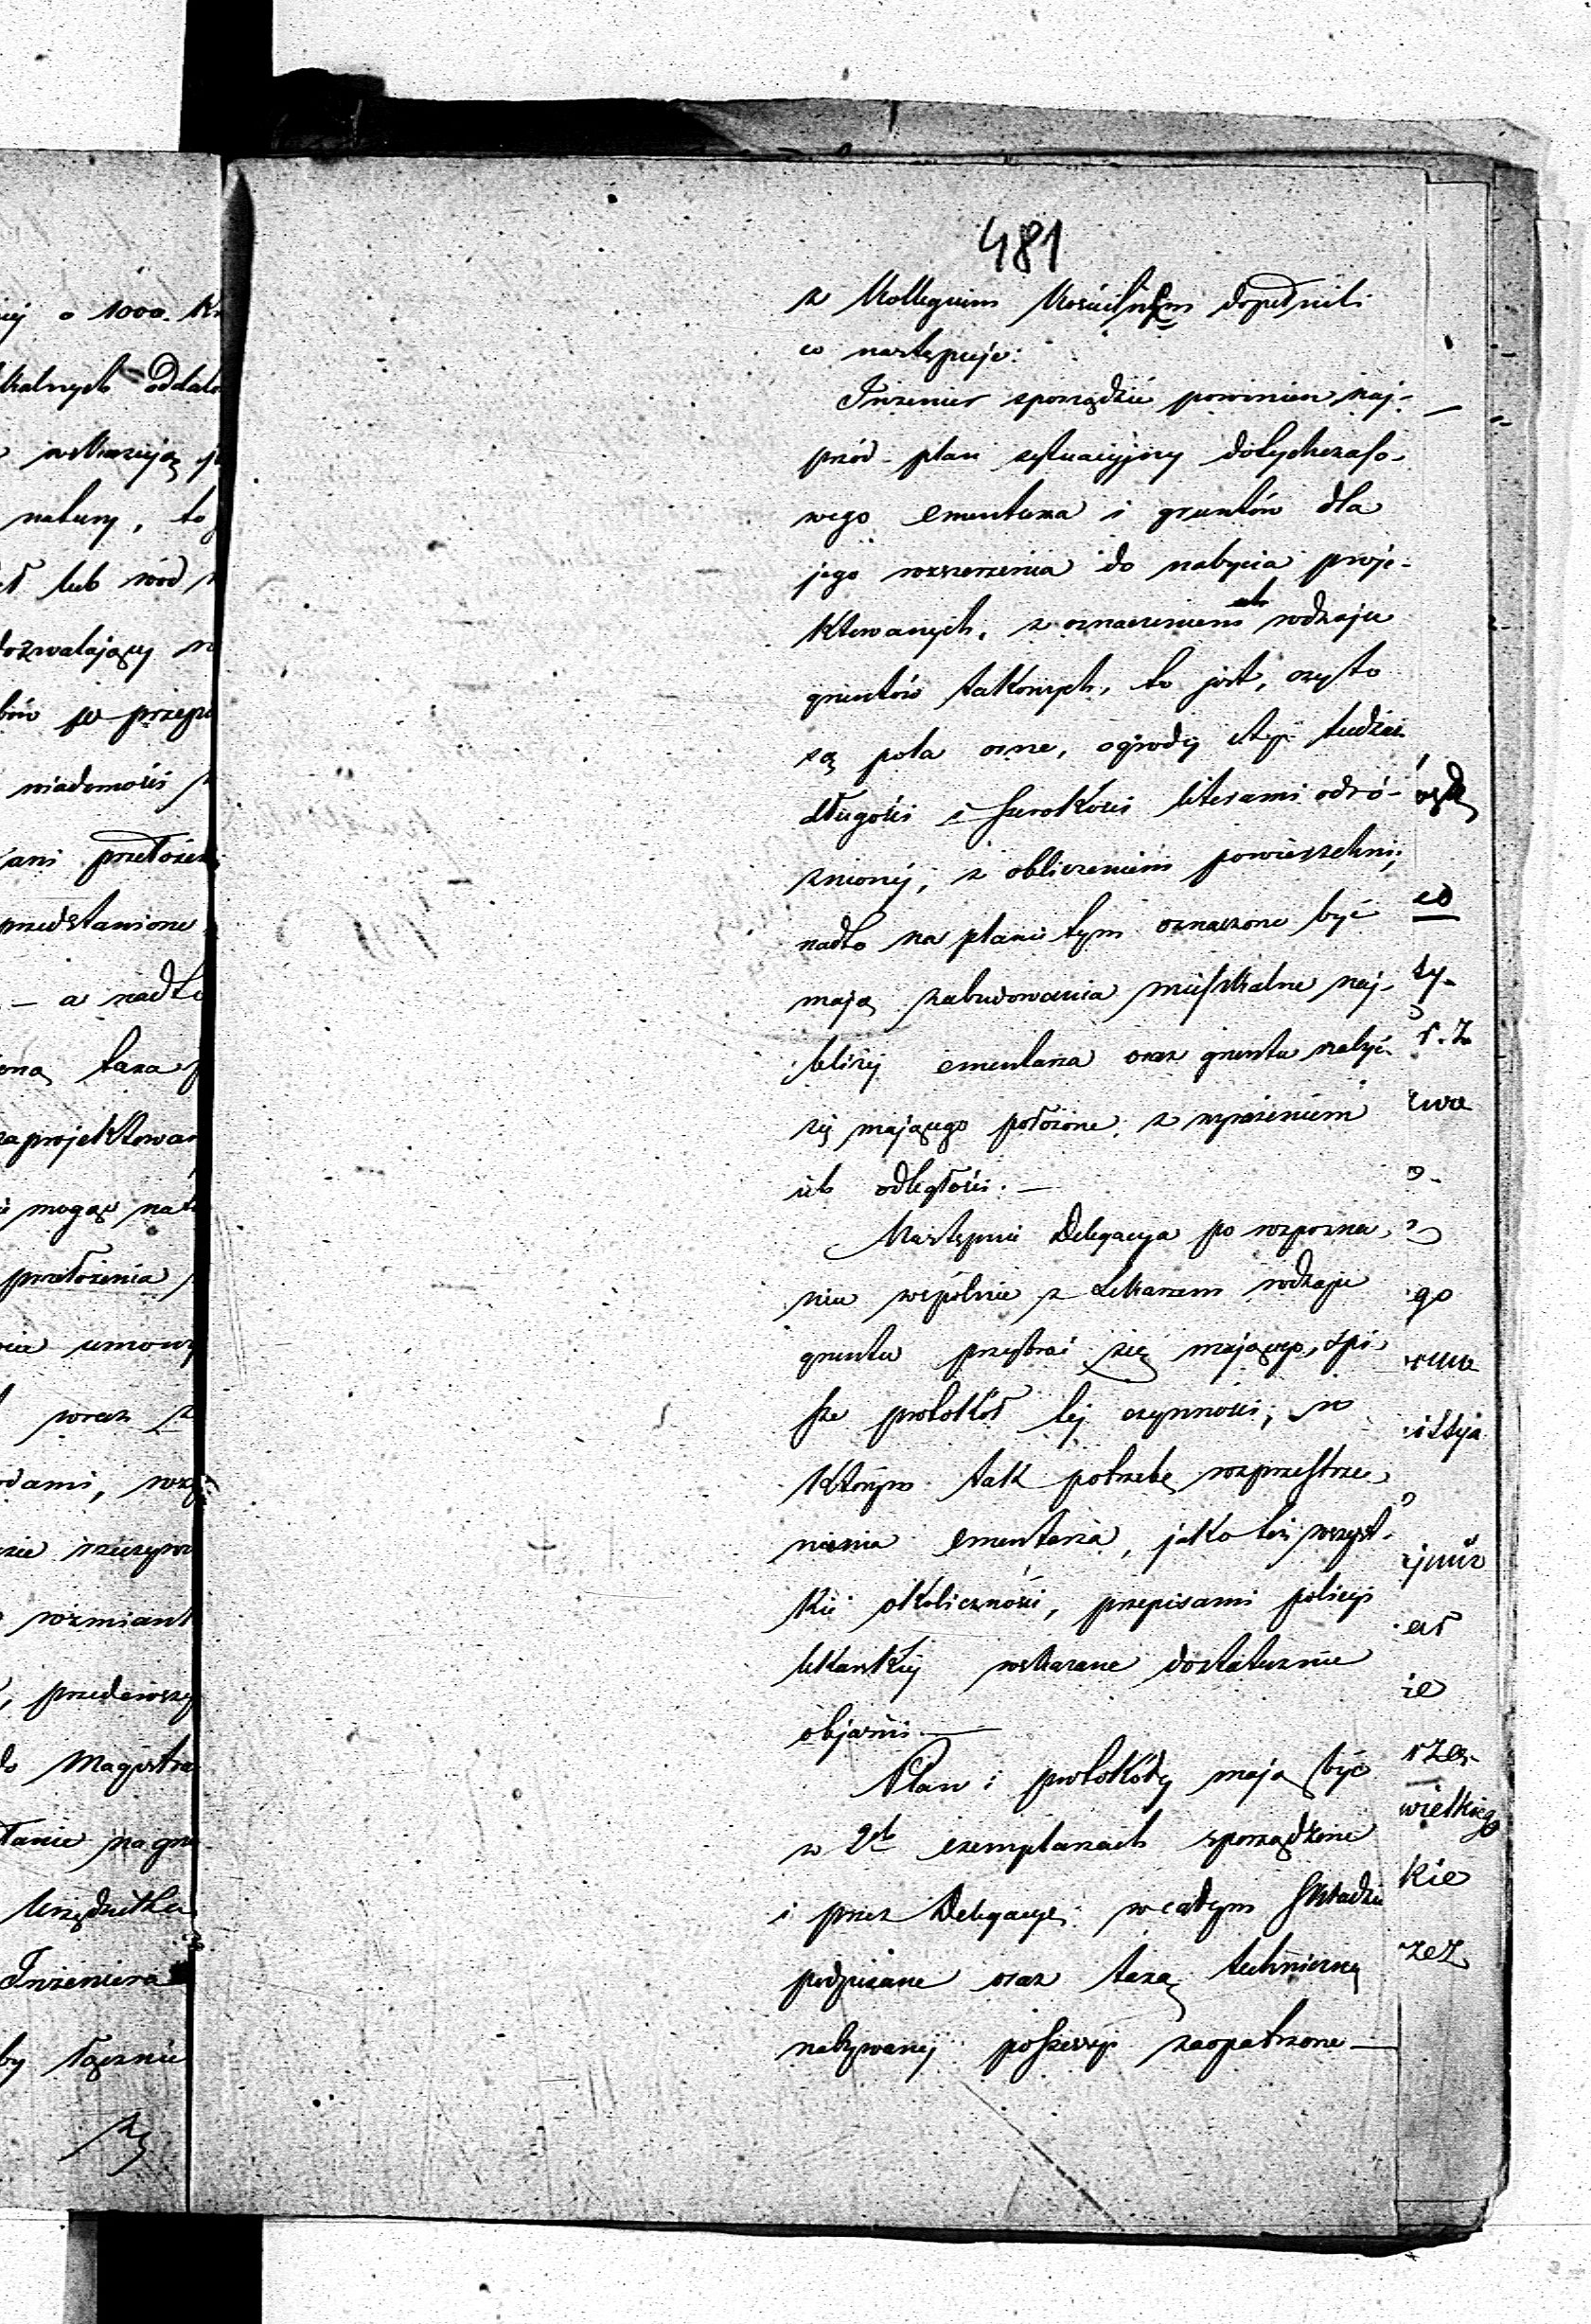 481
z Kollegium Kościelnym dopełnili
co następuje:
Inżenier sporządzić powinien naj-
przód plan sytuacyjny dotychczaso-
wego cmentarza i gruntów dla
jego rozszerzenia do nabycia proje-
ktowanych, z oznaczeniem rodzaju
gruntów takowych, to jest, czy to
są pola orne, ogrody etc. tudzież
długości i szerokości literami odró-
żnionej, z obliczeniem powierzchni;
nadto na planie tym oznaczone być
mają zabudowania mieszkalne naj-
bliżej cmentarza oraz gruntu nabyć
się mającego położone, z wyrażeniem
ich odległości. —
Następnie Delegacya po rozpozna-
niu wspólnie z Lekarzem rodzaju
gruntu przybrać się mającego, spi-
sze protokół tej czynności, w
którym tak potrzebę rozprzestrze-
nienia cmentarza, jako też wszyst-
kie okoliczności, przepisami policyi
lekarskiej wskazane dostatecznie
objaśni. —
Plan i protokóły mają być
w 2ch exemplarzach sporządzone
i przez Delegacyę w całym składzie
podpisane oraz taxą techniczną
nabywanej possessyi zaopatrzone —
ej o 1000. K
natury, to
lub wód
wiadomości
przedstawione
— a nadto
taxa
zaprojektowan
przełożenia
umowy
wraz z
odami,
do Magistra
Urzędnika
Inżeniera
by łącznie
co
ty-
go
wielkiego
kie
zez